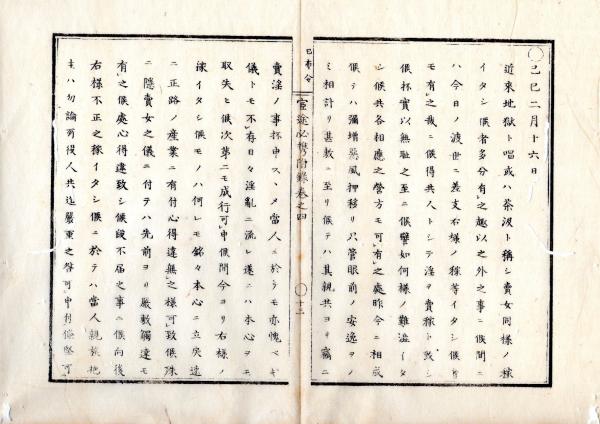 ◯己巳二月十六日
近來地獄ト唱或ハ茶汲ト稱シ賣女同樣ノ稼
イタシ候者多分有之趣以之外之事ニ候間ニ
ハ今日ノ渡世ニ差支右樣ノ稼等イタシ候
モ有之哉ニ候得共人トシテ淫ヲ賣稼ト致シ
候抔實以無耻之至ニ候譬如何樣ノ難澁イタ
シ候共各相應之營方モ可有之處昨今ニ相成
候テハ彌增惡風押移リ只管眼前ノ安逸ヲノ
ミ相計リ甚敷ニ至リ候テハ其親共ヨリ竊ニ
己巳布令
官途必携附錄卷之四
◯十二
賣淫ノ事抔申スヽメ當人ニ於テモ亦愧ベキ
儀トモ不存日々淫亂ニ流レ遂ニハ本心ヲモ
取失ヒ候次第ニモ成行可申候間今ヨリ右樣ノ
稼イタシ候モノハ何レモ銘々本心ニ立戾速
ニ正路ノ產業ニ有付心得違無之樣可致候殊
ニ隱賣女之儀ニ付テハ先前ヨリ嚴敷觸達モ
有之候處心得違致シ候段不屆之事ニ候向後
右樣不正之稼イタシ候ニ於テハ當人親族抱
主ハ勿論町役人共迄嚴重之咎可申付候條堅可